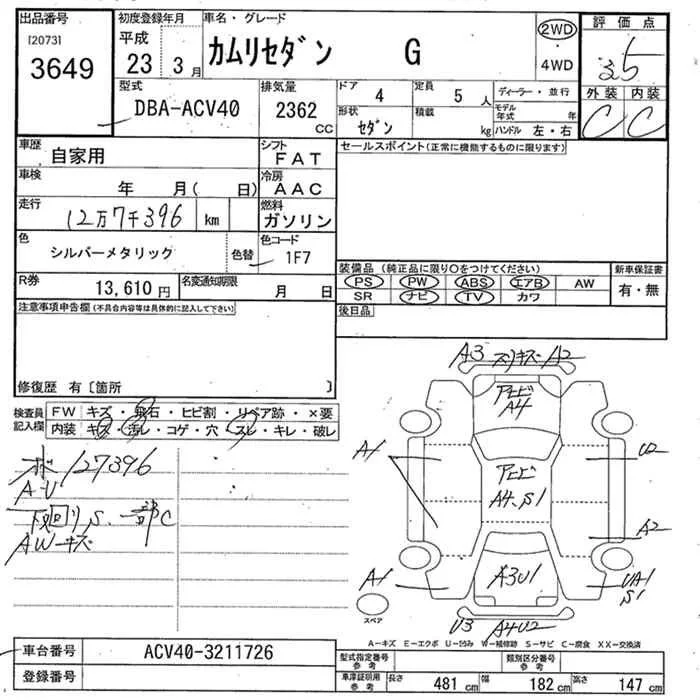 出品番号
[2073]
3649
初度登録年月
平成
23 3月
車名・グレード
カムリセダン G
2WD
・
4WD
評価点
3.5
外装 内装
C C
型式
DBA-ACV40
排気量
2362
CC
ドア 4
定員 5人
形状 セダン
積載 kg
ディーラー・並行
モデル年式 年
ハンドル 左・右
車歴
自家用
シフト
FAT
車検
年 月( 日)
冷房
AAC
走行
12万7千396 km
燃料
ガソリン
色
シルバーメタリック
色替
色コード
1F7
R券
13,610円
名変通知期限
月 日
セールスポイント(正常に機能するものに限ります)
装備品(純正品に限り○をつけてください)
PS PW ABS エアB AW
SR ナビ TV カワ
新車保証書
有・無
後日品
注意事項申告欄(不具合内容等は具体的に記入して下さい)
修復歴 有〔箇所 〕
検査員記入欄
FW キズ・飛石・ヒビ割・リペア跡・×要
内装 キズ・汚レ・コゲ・穴・スレ・キレ・破レ
127396
A-U
下回りS.一部C
AWキズ
A3 スリキズ A2
アヒビ
A4
A1
U2
アヒビ
A4.S1
A2
A1
A3U1
UA1
S1
スペア
U3 A4U2
A-キズ E-エクボ U-凹み W-補修跡 S-サビ C-腐食 XX-交換済
車台番号
ACV40-3211726
登録番号
型式指定番号
参考
類別区分番号
参考
車庫証明用
参考
長さ 481 cm 幅 182 cm 高さ 147 cm